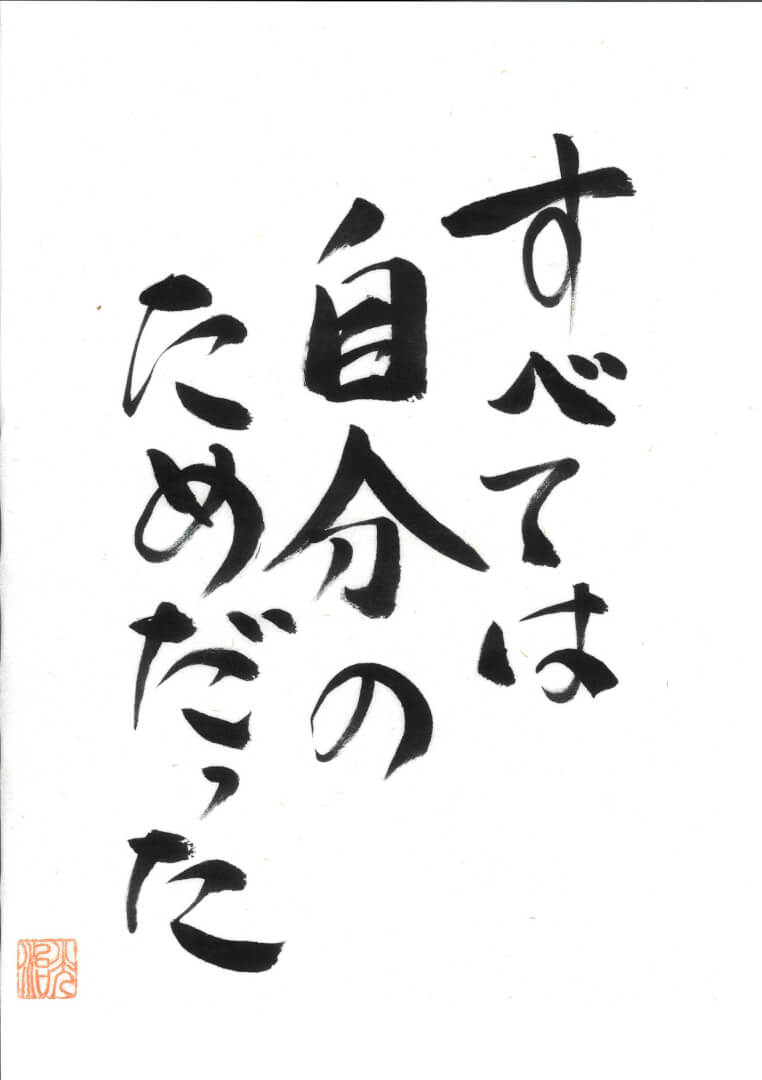 すべては
自分の
ためだった